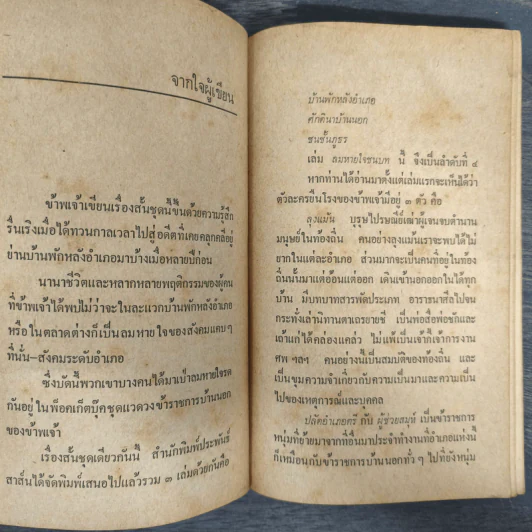 จากใจผู้เขียน
ข้าพเจ้าเขียนเรื่องสั้นชุดนี้ขึ้นด้วยความรู้สึก
รื่นเริงเมื่อได้ทวนกาลเวลาไปสู่อดีตที่เคยคลุกคลีอยู่
ย่านบ้านพักหลังอำเภอมาบ้างเมื่อหลายปีก่อน
นานาชีวิตและหลากหลายพฤติกรรมของผู้คน
ที่ข้าพเจ้าได้พบไม่ว่าจะในละแวกบ้านพักหลังอำเภอ
หรือในตลาดต่างก็เป็นลมหายใจของสังคมแคบๆ
ที่นั่น–สังคมระดับอำเภอ
ซึ่งบัดนี้พวกเขาบางคนได้มาเป่าลมหายใจรด
กันอยู่ในพ็อคเก็ตบุ๊คชุดแวดวงข้าราชการบ้านนอก
ของข้าพเจ้า
เรื่องสั้นชุดเดียวกันนี้ สำนักพิมพ์ประพันธ์
สาส์นได้จัดพิมพ์เสนอไปแล้วรวม ๓ เล่มด้วยกันคือ
บ้านพักหลังอำเภอ
ศักดินาบ้านนอก
ชนชั้นภูธร
เล่ม ลมหายใจชนบท นี้ จึงเป็นลำดับที่ ๔
หากท่านได้อ่านมาตั้งแต่เล่มแรกจะเห็นได้ว่า
ตัวละครยืนโรงของข้าพเจ้ามีอยู่ ๓ ตัว คือ
ลุงแม้น บุรุษไปรษณีย์เฒ่าผู้เจนจบตำนาน
มนุษย์ในท้องถิ่น คนอย่างลุงแม้นเราจะพบได้ไม่
ยากในแต่ละอำเภอ ส่วนมากจะเป็นคนที่อยู่ในท้อง
ถิ่นนั้นมาแต่อ้อนแต่ออก เดินเข้านอกออกในได้ทุก
บ้าน มีบทบาทสารพัดประเภท อาราธนาศีลไปจน
กระทั่งเล่านิทานตาเถรยายชี เป็นพ่อสื่อพ่อชักและ
เถ้าแก่ได้คล่องแคล่ว ไม่แพ้เป็นเจ้ากี้เจ้าการงาน
ศพ ฯลฯ คนอย่างนี้เป็นสมบัติของท้องถิ่น และ
เป็นขุมความจำเกี่ยวกับความเป็นมาและความเป็น
ไปของเหตุการณ์และบุคคล
ปลัดอำเภอตรี กับ ผู้ช่วยสมุห์ เป็นข้าราชการ
หนุ่มที่ย้ายมาจากที่อื่นมาประจำทำงานที่อำเภอแห่งนี้
ก็เหมือนกับข้าราชการบ้านนอกทั่วๆ ไปที่ยังหนุ่ม